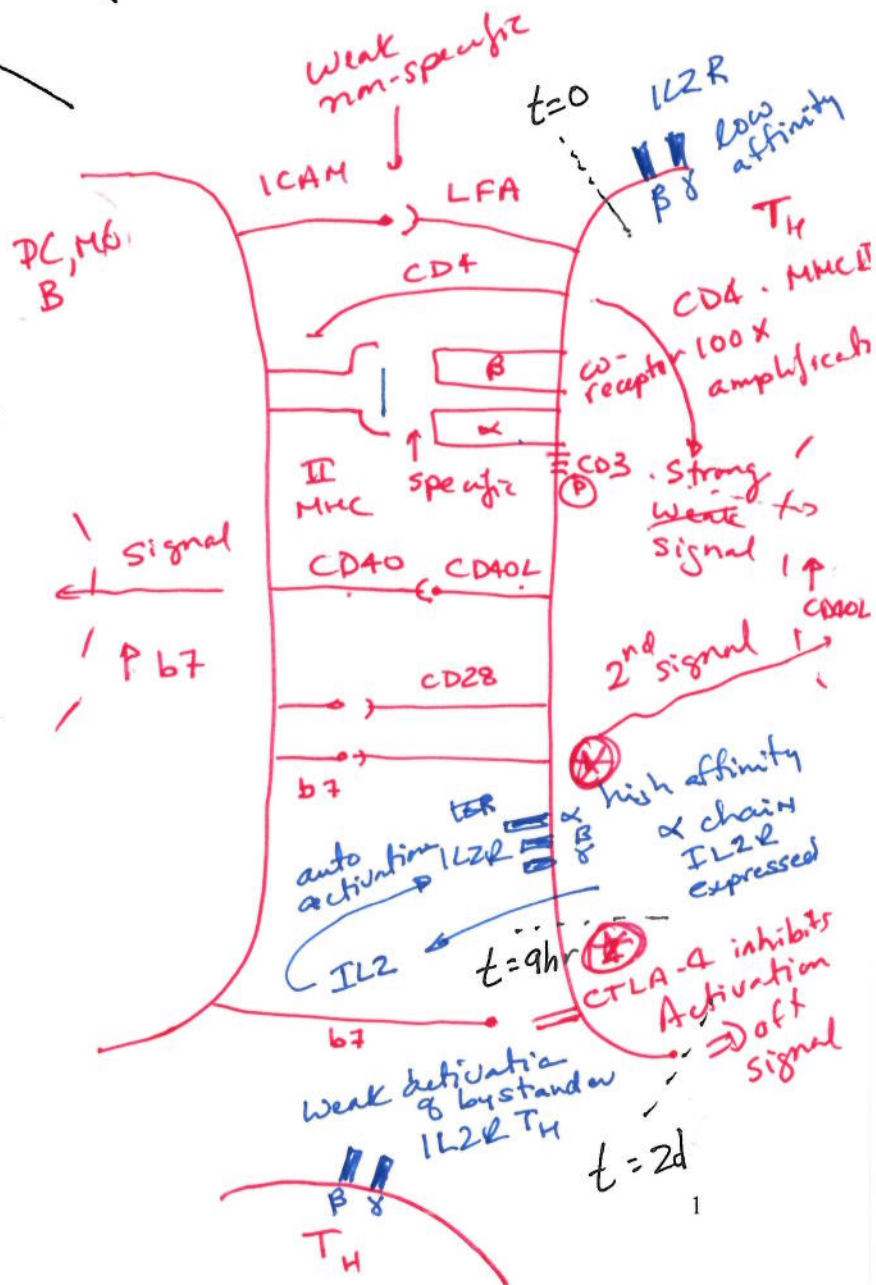 weak
non-specific
t=0
IL2R
low
affinity
β γ
T_H
ICAM
LFA
B
CD4
CD4 . MHC II
co-
receptor 100X
β
α
II
MHC
specific
CD3
P
. Strong
weak
signal
Signal
CD40
CD40L
↑
CD40L
↑ b7
2nd signal
CD28
b7
high affinity
α chain
IL2R
expressed
α
β
γ
auto
activation
IL2R
IL2
t=9hr
CTLA-4 inhibits
Activation
⇒ off
signal
b7
weak activation
of bystander
IL2R T_H
t=2d
β γ
T_H
1